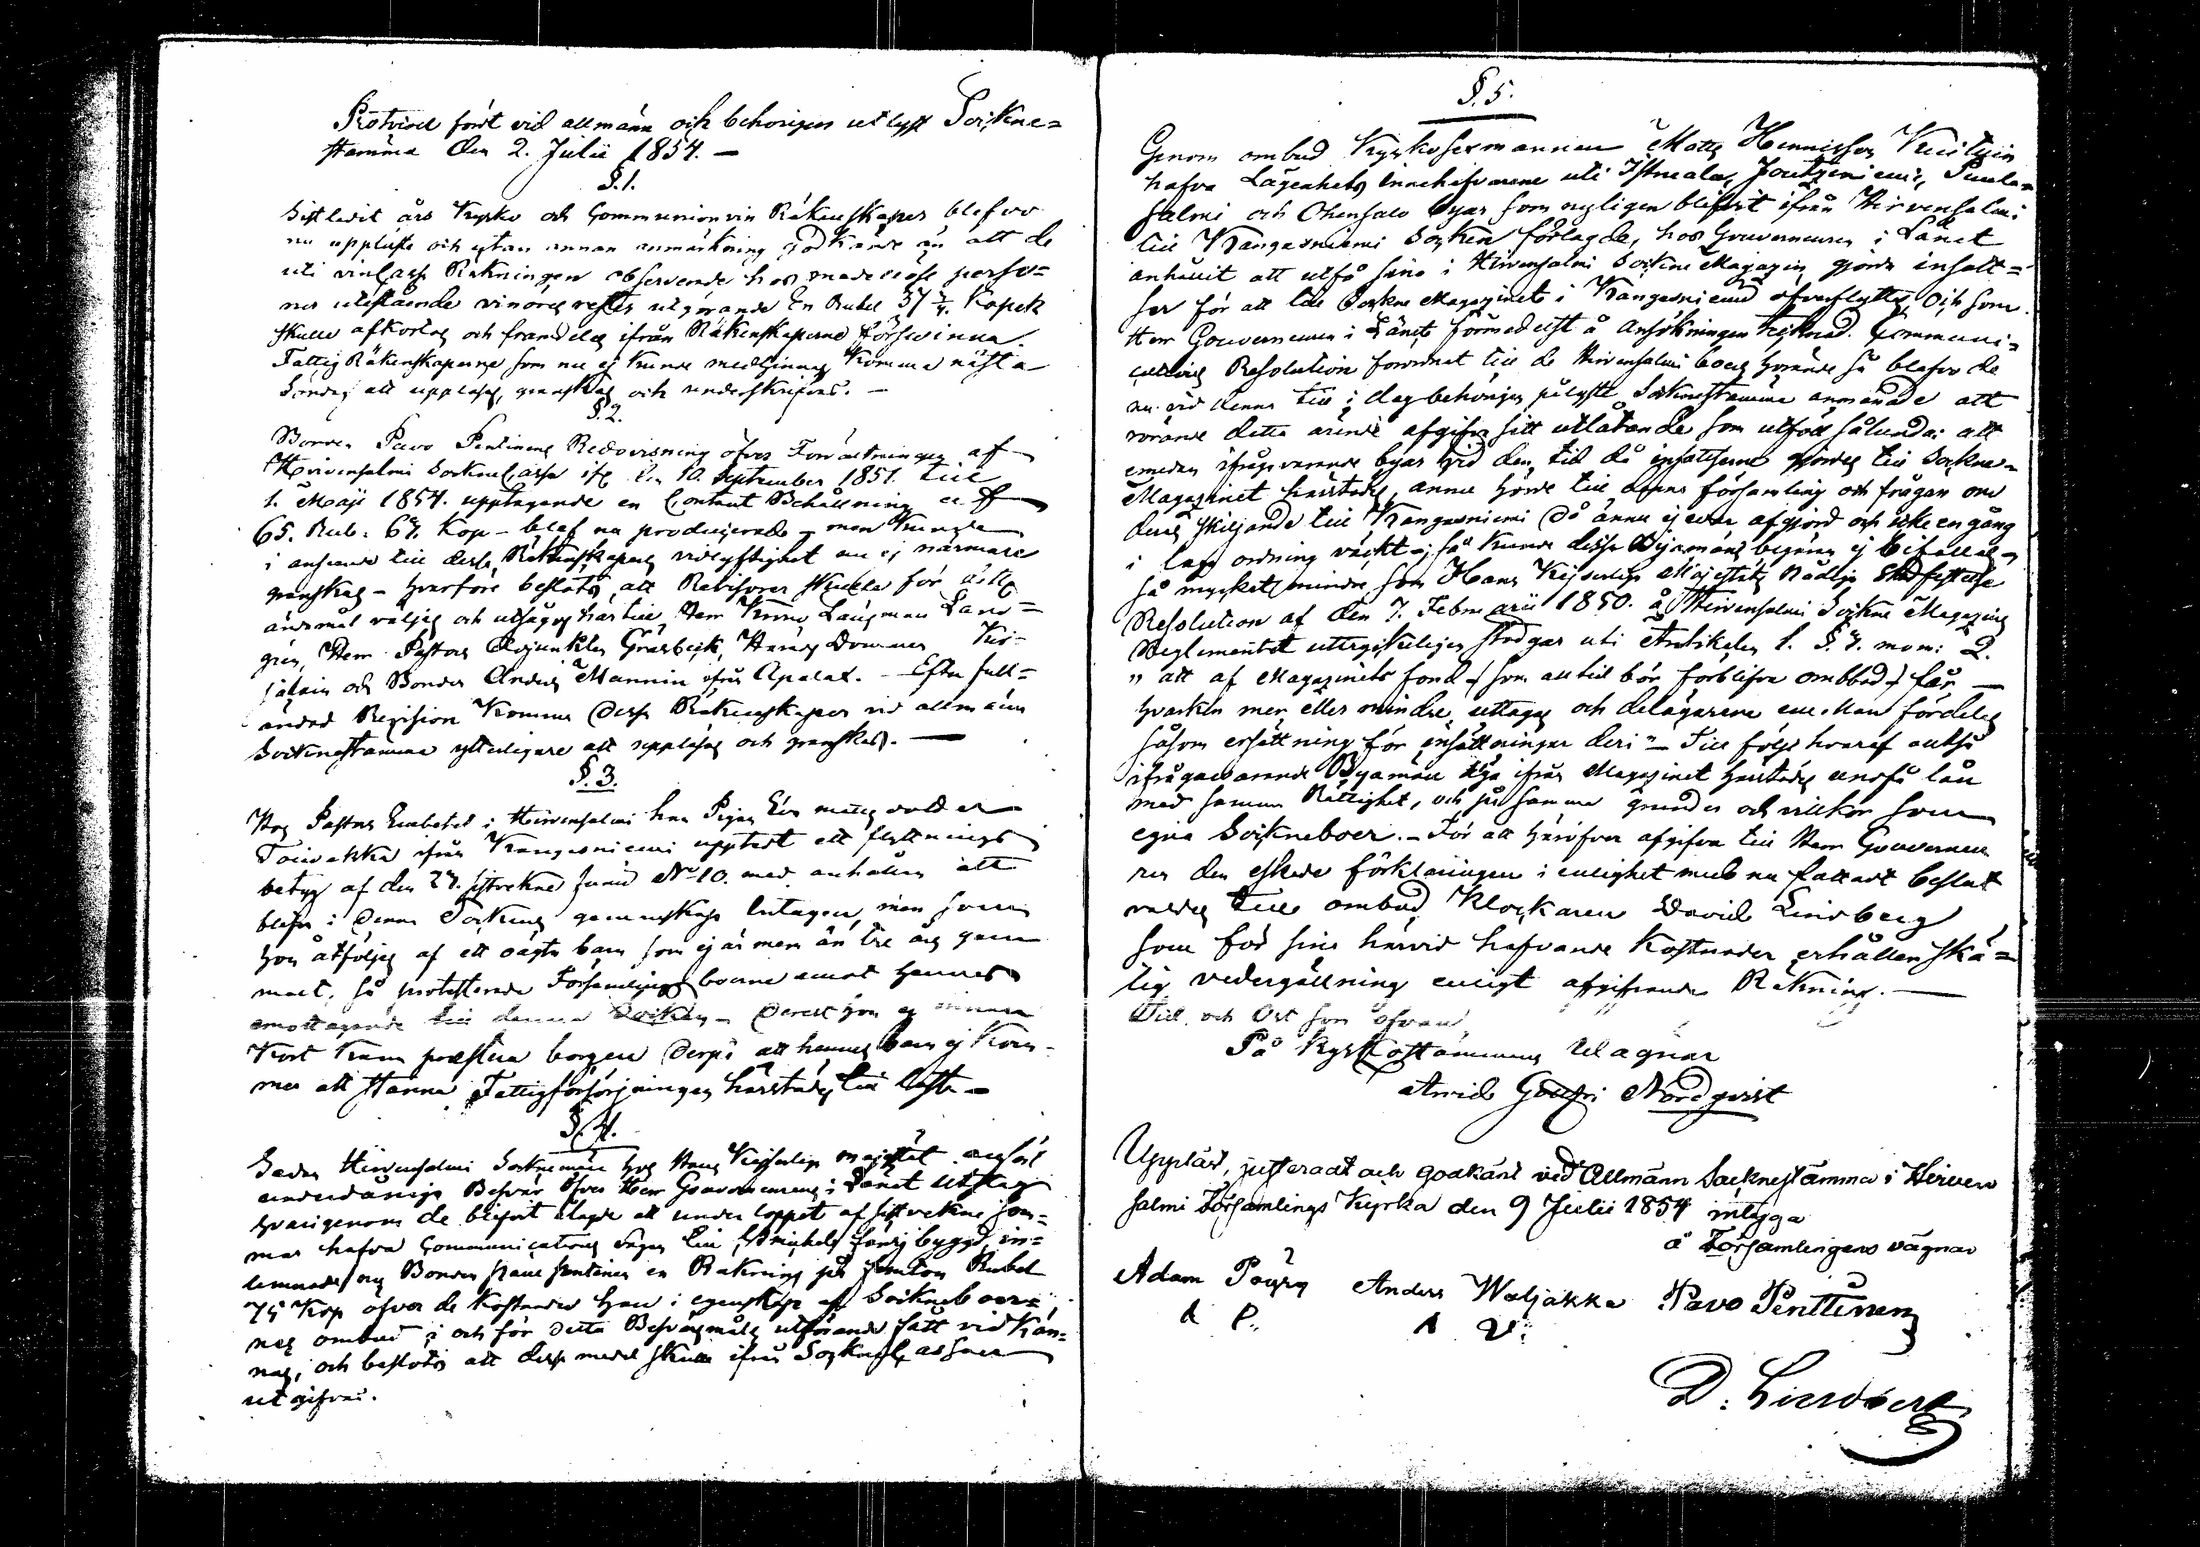 Protocoll fördt vid allmänn och behörigen utlyst Sockne=
stämma den 2. Julii 1854. —
§.1.
Sistledit års Kyrko och Communionvin Räkenskaper blefvo
nu uppläste och utan annan anmärkning godkände än att de
uti vin Cassa Räkningen observerade hos medellöse perso=
ner utestående vinöres rester utgörande En Rubel 37 Kopek
skulle afkortas och framdeles ifrån Räkenskaperne försvinna.
Fattig Räkenskaperne som nu ej kunde medhinnas komma nästa
Söndag att uppläsas, granskas och underskrifvas. —
§.2.
Bonden Pavo Pentinens Redovisning öfver Förvaltningen af
Hirvensalmi Sockne Cassa ifrån den 10. September 1851. till
1. Maji 1854. upptagande en Contant Behållning af
65. Rub: 67. Kop — blef nu producerad — men kunde
i anseende till dess Räkenskapers vidlyftighet nu ej närmare
granskas — hvarföre beslöts, att Revisorer skulle för detta
ändamål väljas och utsågos härtill Herr Lagman Land=
gren, Herr Pastors Adjuncten Gråsbeck,
och Bonden Anders Manninen ifrån Apalax. — Efter full=
ändad Revision komma dessa Räkenskaper vid allmänn
Socknestämma ytterligare att uppläsas och granskas. —
§.3.
Hos Pastors Embetet i Hirvensalmi har Pigan Eva
Toivakka ifrån Kangasniemi uppteedt ett flyttnings
betyg af den 27. sistvekne Junii No 10. med anhållan att
blifva i denna Sockens gemenskap intagen, men som
hon åtföljes af ett oägta barn som ej är mera än tre års gam
malt, så protesterade Församlingsboerne emot hennes
emottagande till denna Socken — derest hon ej
kort kunna præstera borgen derpå att hennes barn ej kom=
mer att stanna Fattigförsörjningen härstädes till last —
§.4.
Sedan Hirvensalmi Socknemän hos Hans Kejserlig Majestät anfört
underdåniga Besvär öfver Herr Gouverneurens i Länet Utslag
hvarigenom de blifvit ålagde att under loppet af sistvekne som=
mar hafva Communications vägen till St Michels färdig bygd, in=
lemnade nu Bonden Pavo Pentinen en Räkning på femton Rubel
75 Kop öfver de kostnader han i egenskap af Sockneboer=
nes ombud i och för detta Besvärsmåls utförande fått vidkän=
nas, och beslöts att dessa medel skulle ifrån Sockne Cassan
utgifvas.
§.5.
Genom ombud Kyrkosexmannen Matts Hennisson Kuitunin
hafva Lägenhets innehafvarene uti Istruala, Joutsniemi, Puula=
salmi och Ohensalo byar som nyligen blifvit ifrån Hirvensalmi
till Kangasniemi Socken förlagde, hos Gouverneuren i Länet
anhållit att utfå sina i Hirvensalmi Sockne Magazin gjorda insatt=
ser för att till Sockne Magazinet i Kangasniemi öfverflyttas, och som
Herr Gouverneuren i Länet förmedelst å Ansökningen tecknad Communi=
cations Resolution förordnat till de Hirvensalmi boers hörande så blefvo de
nu vid denna till i dag behörigen pålyste Socknestämma anmanade att
rörande detta ärende afgifva sitt utlåtande som utföll sålunda: att
emedan ifrågavarande byar vid den tid då insatserne gjordes till Sockne=
Magazinet härstädes, ännu hörde till denna församling och frågan om
deras skiljande till Kangasniemi då ännu ej var afgjord och icke en gång
i laga ordning väckt, så kunde dessa Byamäns begäran ej bifallas
så mycket mindre som Hans Kejserlig Majestäts Nådiga Stadfästelse
Resolution af den 7. Februarii 1850. å Hirvensalmi Sockne Magazins
Reglementet uttryckeligen stadgar uti Artikelen 1. §.7. mom: 2.
" att af Magazinets fond (som alltid bör förblifva orubbad) får —
hvarken mer eller mindre uttagas och delägarene emellan fördelas
såsom ersättning för insättningar deri" — Till följe hvaraf också
ifrågavarande Byamän ega ifrån Magazinet härstädes undfå lån
med samma Rättighet, och på samma grunder och villkor som
egna Sockneboer. — För att häröfver afgifva till Herr Gouverneu
ren den äskade förklaringen i enlighet med nu fattadt beslut
valdes till ombud Klockaren David Lindberg
som för sina härvid hafvande kostnader erhåller skä=
lig vedergällning enligt afgifvande Räkning. —
Tid och Ort som ofvan,
På Kyrkostämmans Vägnar
Arvid Gottfri Nordqvist
Uppläst, justeradt och godkänt vid Allmänn Sacknestämma i Hirven
salmi Församlings Kyrka den 9 Julii 1854 intyga
å Församlingens vägnar
Adam Pöyry Anders Waljakka Pavo Penttinen
A P. A V:
D: Lindberg